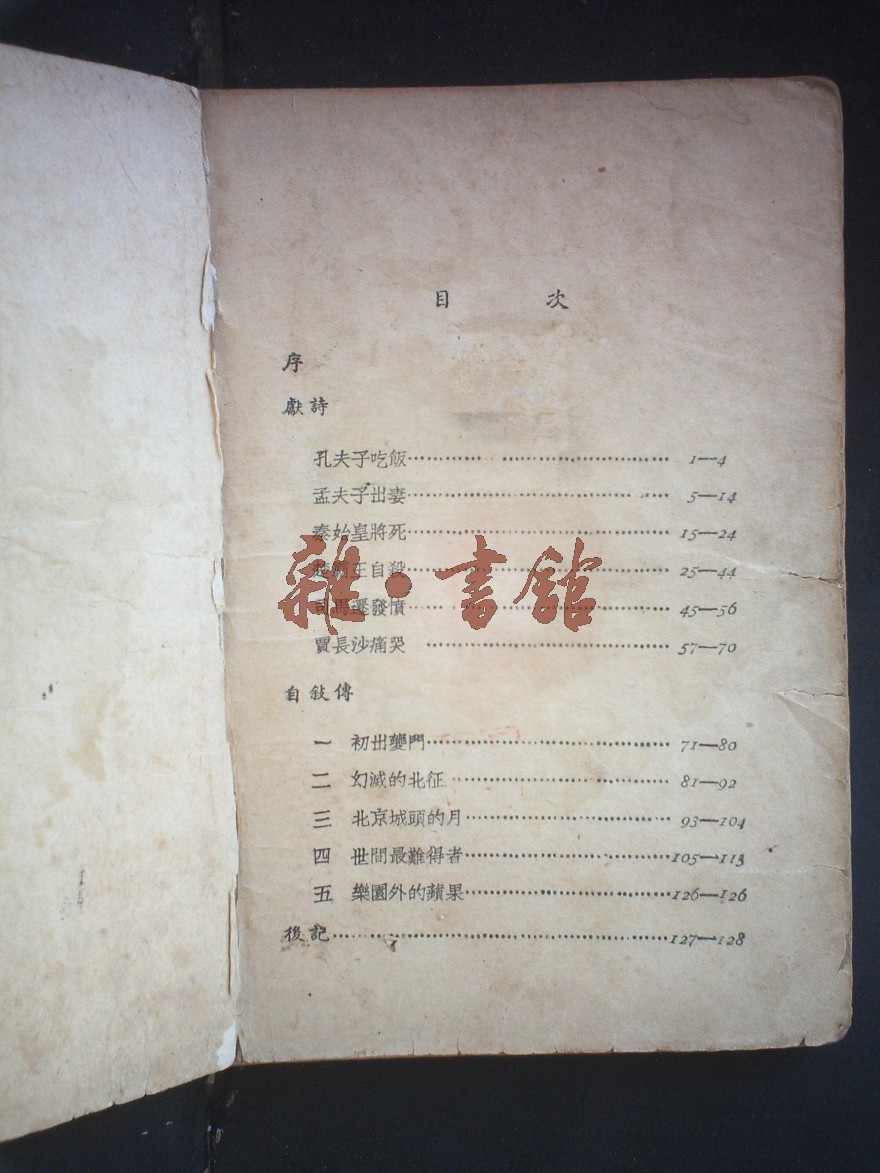 目 次
序
獻詩
孔夫子吃飯…………………………… 1—4
孟夫子出妻…………………………… 5—14
秦始皇將死…………………………… 15—24
楚霸王自殺…………………………… 25—44
司馬遷發憤…………………………… 45—56
賈長沙痛哭…………………………… 57—70
自敍傳
一 初出夔門………………………… 71—80
二 幻滅的北征……………………… 81—92
三 北京城頭的月…………………… 93—104
四 世間最難得者……………………105—113
五 樂園外的蘋果……………………126—126
後記……………………………………127—128
雜·書館